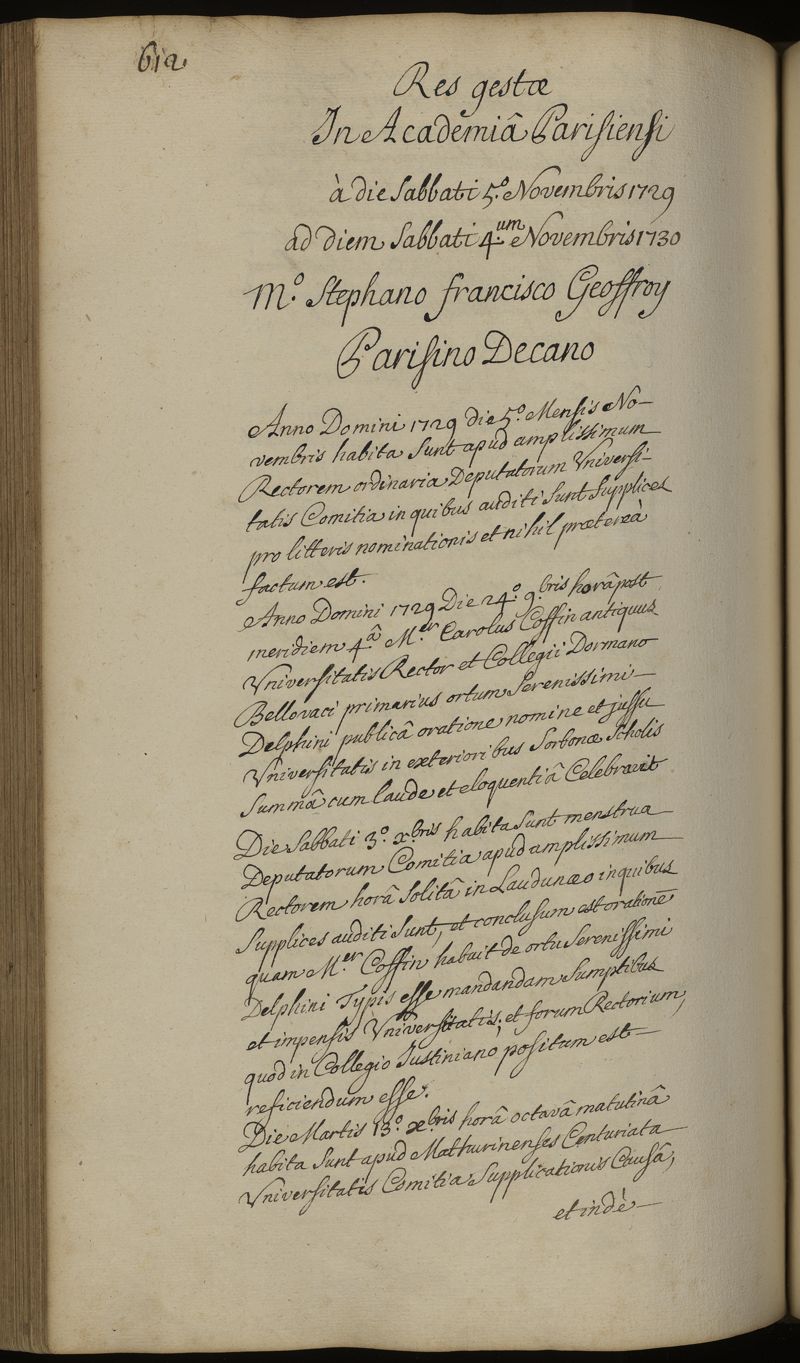 612
Res gestæ
In Academiâ Parisiensi
à die Sabbati 5.º Novembris 1729
ad diem Sabbati 4.um Novembris 1730
M.º Stephano francisco Geoffroy
Parisino Decano
Anno Domini 1729 Die 5.º Mensis No-
vembris habita Sunt apud amplissimum
Rectorem ordinaria Deputatorum Universi-
tatis Comitia in quibus auditi Sunt Supplices
pro litteris nominationis et nihil prætereà
factum est.
Anno Domini 1729 Die 24.º 9.bris horâ post
meridiem 4.â M.er Carolus Coffin antiquus
Universitatis Rector et Collegii Dormano
Bellovaci primarius ortum Serenissimi
Delphini publicâ oratione nomine et jussu
Universitatis in exterioribus Sorbonæ Scholis
Summâ cum laude et eloquentiâ Celebravit
Die Sabbati 3.º xbris habita Sunt menstrua
Deputatorum Comitia apud amplissimum
Rectorem horâ Solitâ in Laudunæo in quibus
Supplices auditi Sunt, et conclusum est orationē
quam M.er Coffin habuit de ortu Serenissimi
Delphini Typis esse mandandam Sumptibus
et impensis Universitatis; et forum Rectorium,
quod in Collegio Justiniano positum est
reficiendum esse.
Die Martis 13.º xbris horâ octavâ matutinâ
habita Sunt apud Mathurinenses Centuriata
Universitatis Comitia Supplicationis Causâ,
et indè